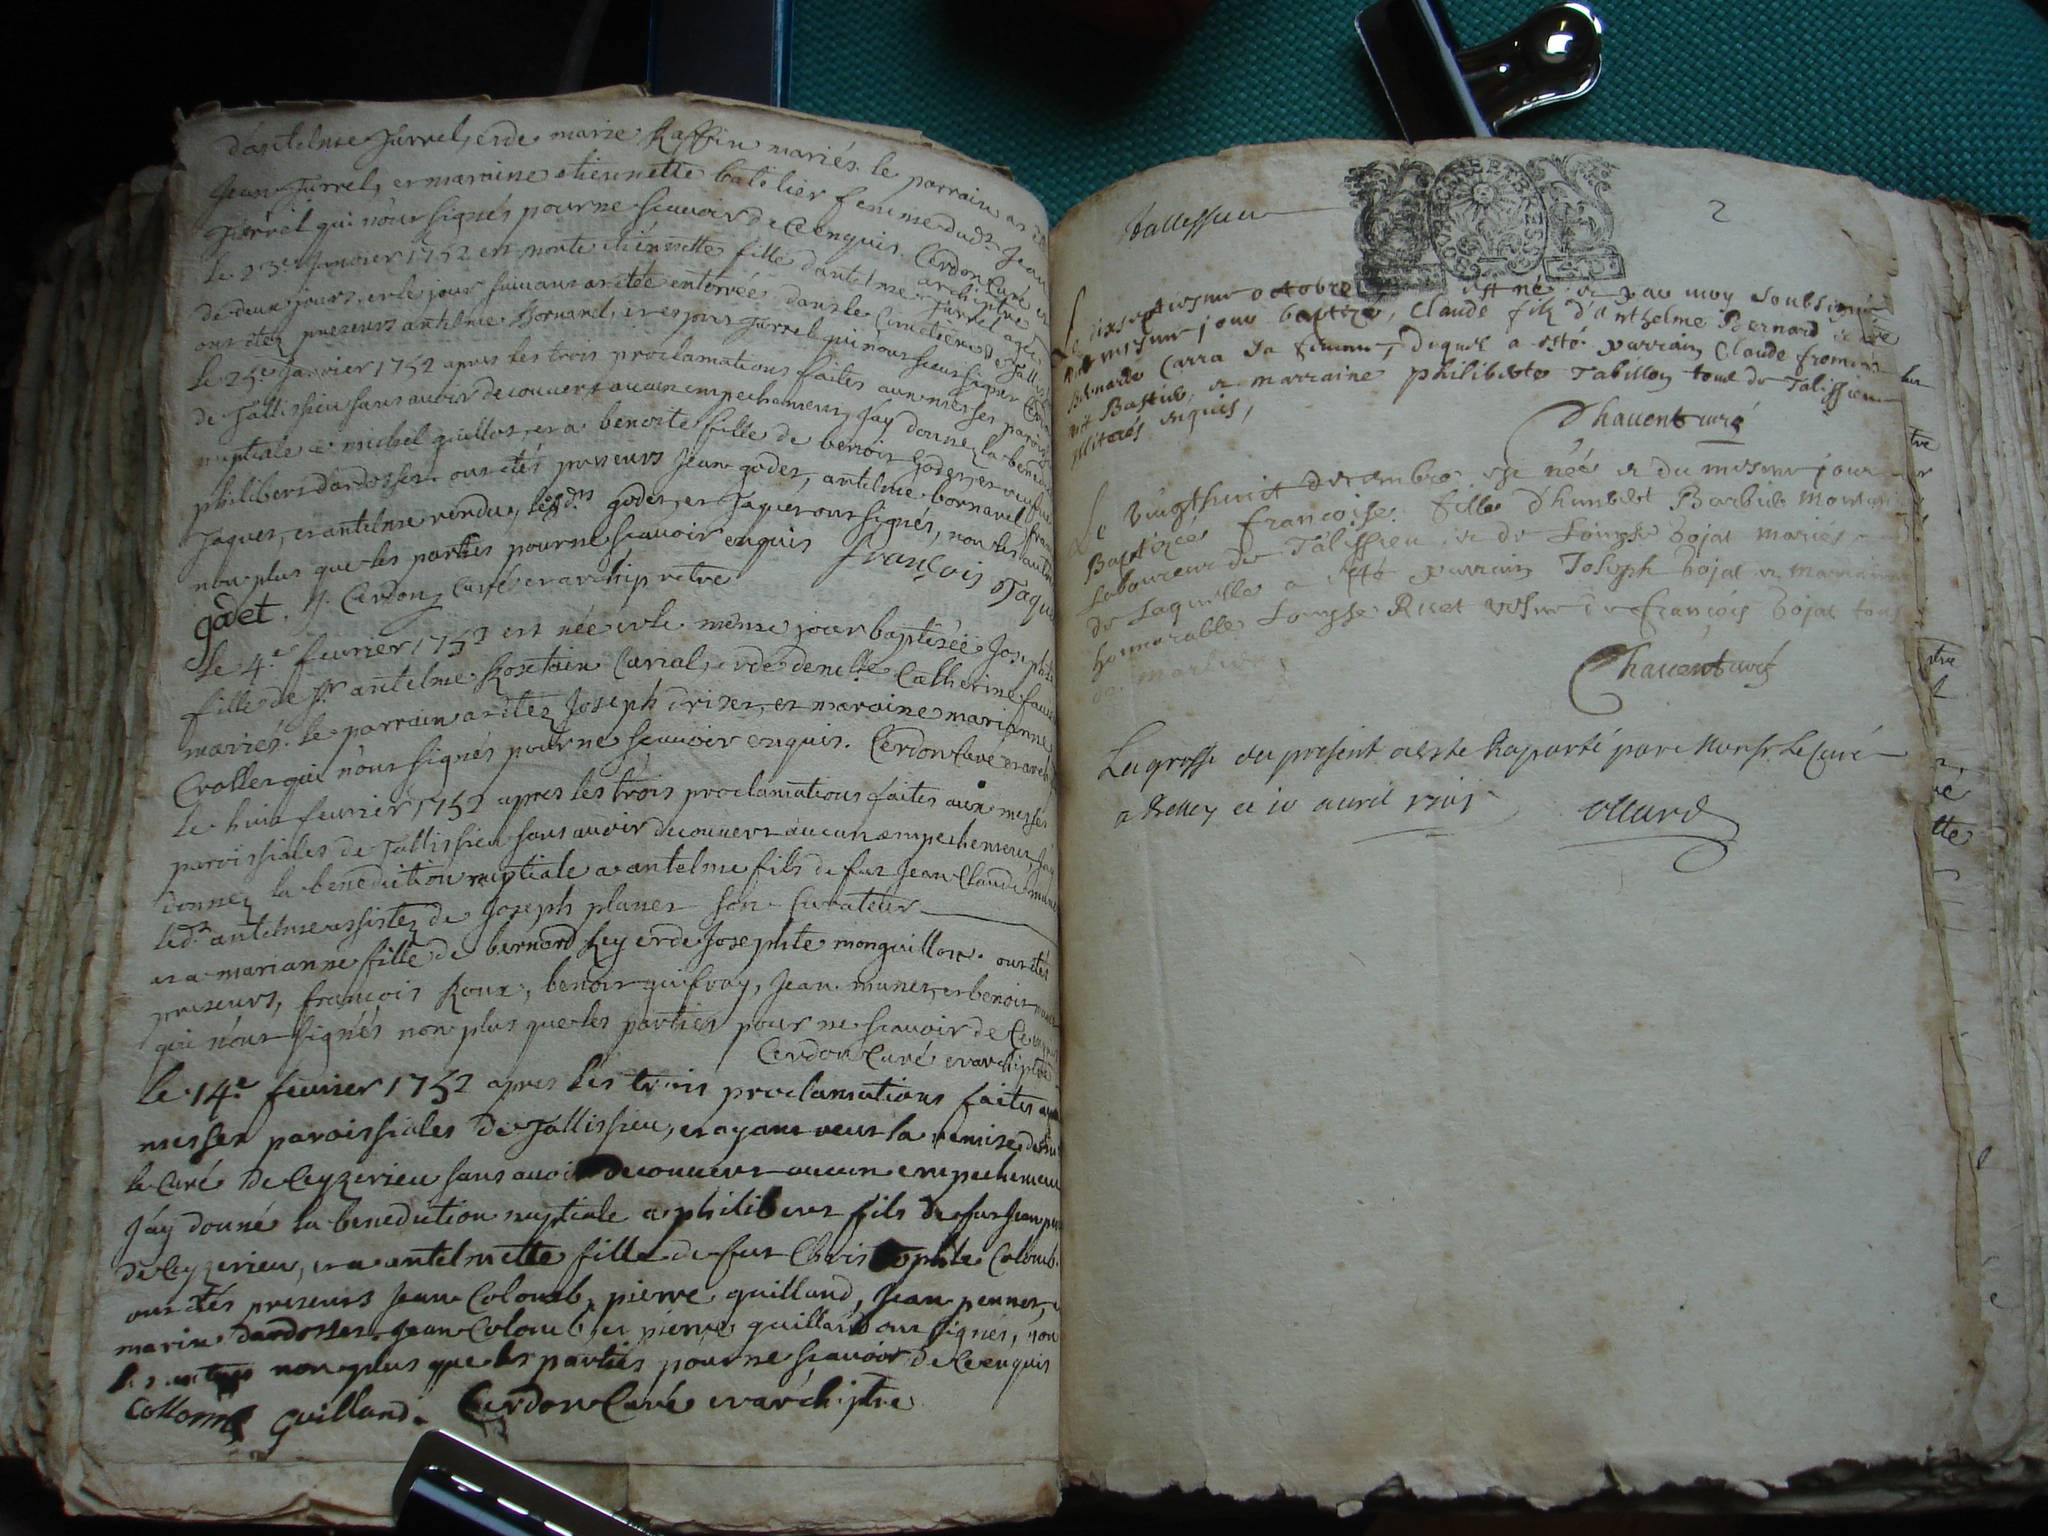 d'antelme Jurrel, et de marie Raffin mariés. le parrain a été
Jean Jurrel, et maraine etiennette batelier femme dudt. Jean
Jurrel qui nont signés pour ne scavoir de ce enquis. Cerdon Curé et
archiptre
le 23e. Janvier 1752 est morte etiennette fille dantelme Jurrel agée
de deux jours, et le jour suivant a etée enterrée dans le Cimetiere de Tallissieu
ont étez presents antelme bornarel, et Jurrel qui nont sceu signer Cerdon
le 25e. Janvier 1752 apres les trois proclamations faites aux messes paroissiales
de Tallissieu sans avoir decouvert aucun empechement, Jay donnez la benediction
nuptiale a michel guillot, et a benoite fille de benoit godet, et veufve
philibert dardosset. ont étés presents Jean godet, antelme bornarel, françois
Jaques, et antelme verdu, lesdts. godet, et Jaques ont signés, non les autres
non plus que les parties pour ne scavoir enquis françois Jaque
godet. J. Cerdon, Curé et archipretre
le 4.e fevrier 1752 est née et le meme jour baptisée Josephte
fille de Sr. antelme Rosetain Curial, et de demlle. Catherine
mariés. le parrain a étez Joseph drizet, et maraine marianne
Crollet qui nont signés pour ne scavoir enquis. Cerdon Curé et arch
le huit fevrier 1752 apres les trois proclamations faites aux messes
paroissiales de Tallissieu sans avoir decouvert aucun empechement, Jay
donnez la benediction nuptiale a antelme fils de fut Jean Claude munet
led.t antelme assistez de Joseph planet son Curateur
et a marianne fille de bernard Rey et de Josephte monguillon. ont étés
presents, françois Roux, benoit guifray, Jean munet, et benoit
qui n'ont signés non plus que les parties pour ne scavoir de ce enquis
Cerdon Curé et archiptre
le 14.e fevrier 1752 apres les trois proclamations faites aux
messes paroissiales de Tallissieu, et ayant veut la remise de
le Curé de Ceyzerieu sans avoir decouvert aucun empechement
Jay donné la benediction nuptiale a philibert fils de fut Jean
de Ceyzerieu, et a antelmette fille de fut Christophle Colomb.
ont étés presents Jean Colomb, pierre guilland, Jean pennet,
marin dardosset. Jean Colomb, et pierre guilland ont signés, non
les autres non plus que les parties pour ne scavoir de ce enquis
Collomb guilland. Cerdon Curé et archiptre
Tallissieu 2
Le dixseptiesme octobre est né et par moy soubsigné
mesme jour baptizé, Claude filz d'anthelme Bernard et de
Bernarde Carra sa femme, duquel a esté parrain Claude froment
dit Bastie, et marraine philiberte Tabillon tous de Talissieu
illiterés enquis,
Dhauent curé
Le vingthuict decembre est née et du mesme jour
Baptizée Francoise fille d'humbert Barbier
laboureur de Talissieu et de Loüyse Dojat mariés
de laquelle a esté parrain Joseph Dojat et marraine
honnorable Louyse Riset vefve de françois Dojat tous
de
Dhauent curé
La grosse du present a esté Raporté par Monsr. Le Curé
a Belley ce 10 avril
ollard